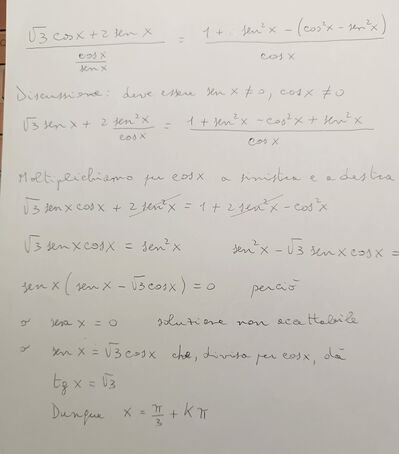 √3 cosx + 2 senx / (cosx / senx) = 1 + sen²x - (cos²x - sen²x) / cosx
Discussione: deve essere sen x ≠ 0, cosx ≠ 0
√3 senx + 2 sen²x / cosx = 1 + sen²x - cos²x + sen²x / cosx
Moltiplichiamo per cosx a sinistra e a destra
√3 senx cosx + 2 sen²x = 1 + 2 sen²x - cos²x
√3 senx cosx = sen²x sen²x - √3 senx cosx =
senx (senx - √3 cosx) = 0 perciò
o senx = 0 soluzione non accettabile
o senx = √3 cosx che, divisa per cosx, dà
tg x = √3
Dunque x = π/3 + Kπ